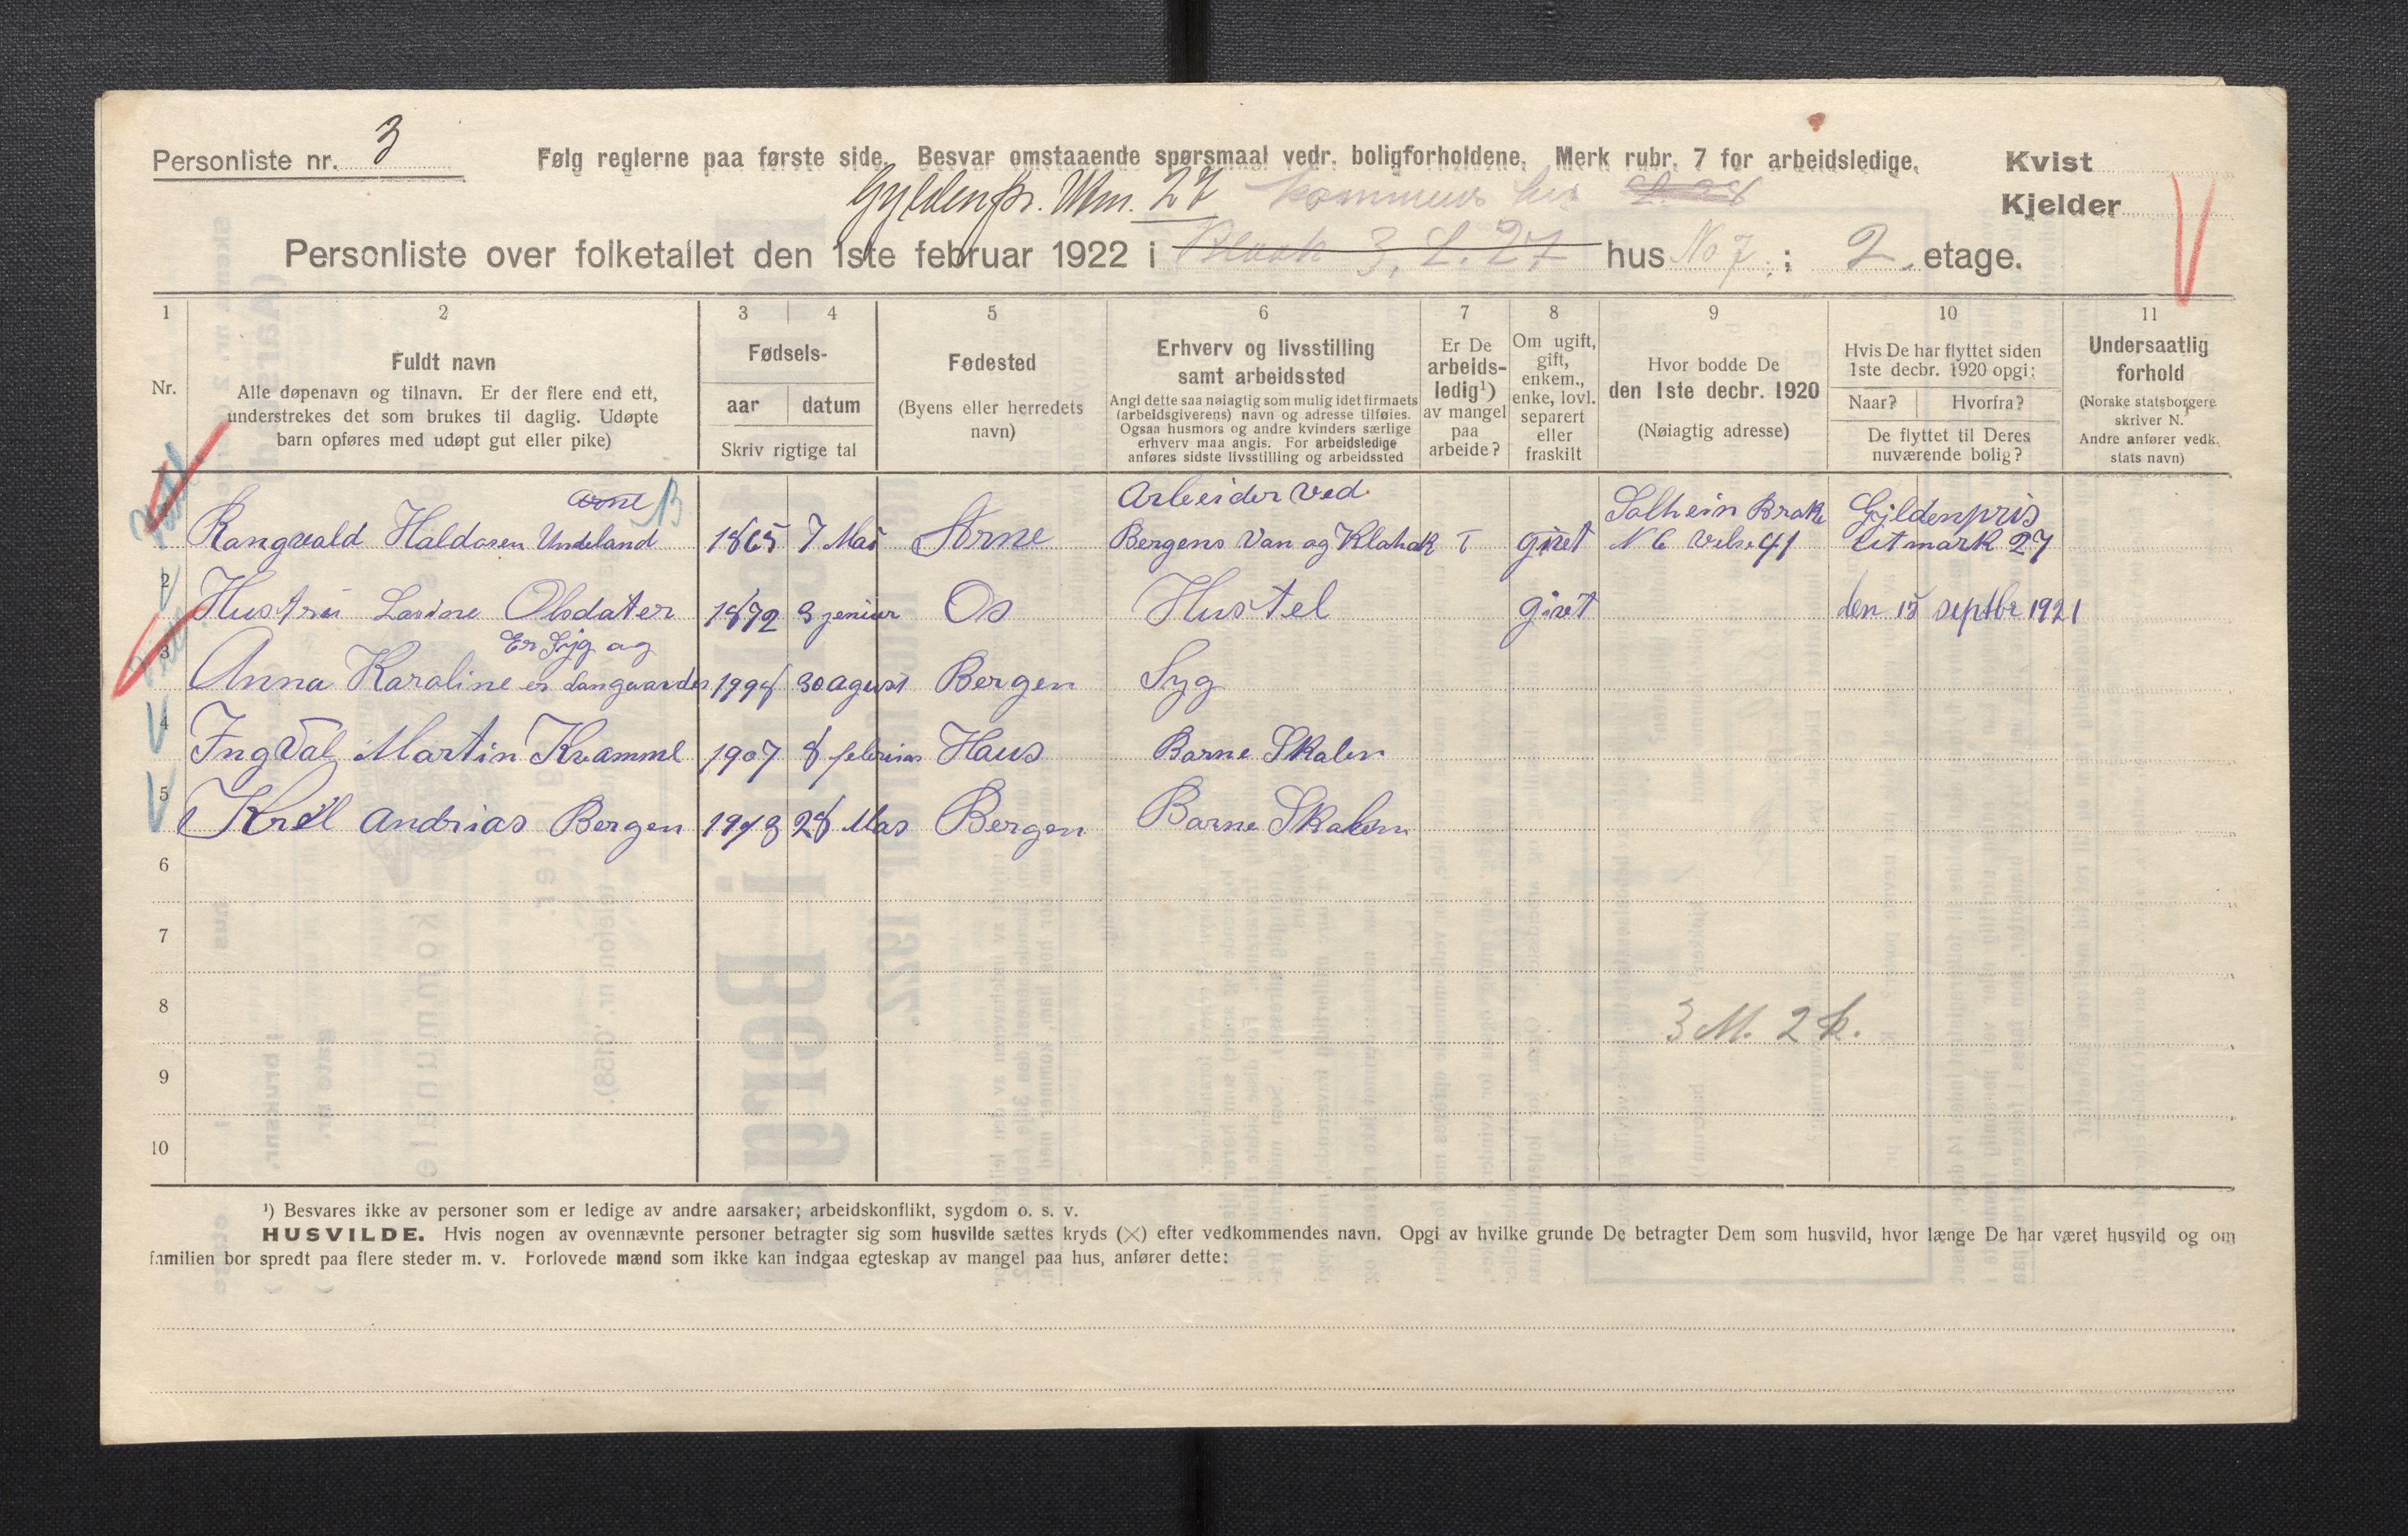 Personliste nr. 3
Følg reglerne paa første side. Besvar omstaaende spørsmaal vedr. boligforholdene. Merk rubr. 7 for arbeidsledige.
Kvist
Kjelder
Gyldenpr. Utm. 27
Personliste over folketallet den 1ste februar 1922 i Blook 3, L. 27 hus No 7. ; 2. etage.
1 2 3 4 5 6 7 8 9 10 11
Nr.
Fuldt navn
Alle døpenavn og tilnavn. Er der flere end ett,
understrekes det som brukes til daglig. Udøpte
barn opføres med udøpt gut eller pike)
Fødsels-
aar datum
Skriv rigtige tal
Fødested
(Byens eller herredets
navn)
Erhverv og livsstilling
samt arbeidssted
Angi dette saa nøiagtig som mulig idet firmaets
(arbeidsgiverens) navn og adresse tilføies.
Ogsaa husmors og andre kvinders særlige
erhverv maa angis. For arbeidsledige
anføres sidste livsstilling og arbeidssted
Er De
arbeids-
ledig¹)
av mangel
paa
arbeide?
Om ugift,
gift,
enkem.,
enke, lovl.
separert
eller
fraskilt
Hvor bodde De
den 1ste decbr. 1920
(Nøiagtig adresse)
Hvis De har flyttet siden
1ste decbr. 1920 opgi:
Naar? Hvorfra?
De flyttet til Deres
nuværende bolig?
Undersaatlig
forhold
(Norske statsborgere
skriver N.
Andre anfører vedk.
stats navn)
Arbeider ved Solhein Brake Gyldenpris
Rangvald Haldosen Undeland 1865 7 Mai Arne Bergens Van og Klohak T givet N 6 41 Utmark 27
2 Hustru Olsdater 1872 3 Os Hustel givet den 15 septbr 1921
Er Syg og
3 Anna Karoline er 30 agust Bergen Syg
4 Ingval Martin Kvamme 1907 8 Haus Barne Skolen
5 Andrias Bergen 28 Mas Bergen Barne Skolen
6
7
8
3 M. 2 k.
9
10
¹) Besvares ikke av personer som er ledige av andre aarsaker; arbeidskonflikt, sygdom o. s. v.
HUSVILDE. Hvis nogen av ovennævnte personer betragter sig som husvilde sættes kryds (×) efter vedkommendes navn. Opgi av hvilke grunde De betragter Dem som husvild, hvor længe De har været husvild og om
familien bor spredt paa flere steder m. v. Forlovede mænd som ikke kan indgaa egteskap av mangel paa hus, anfører dette: